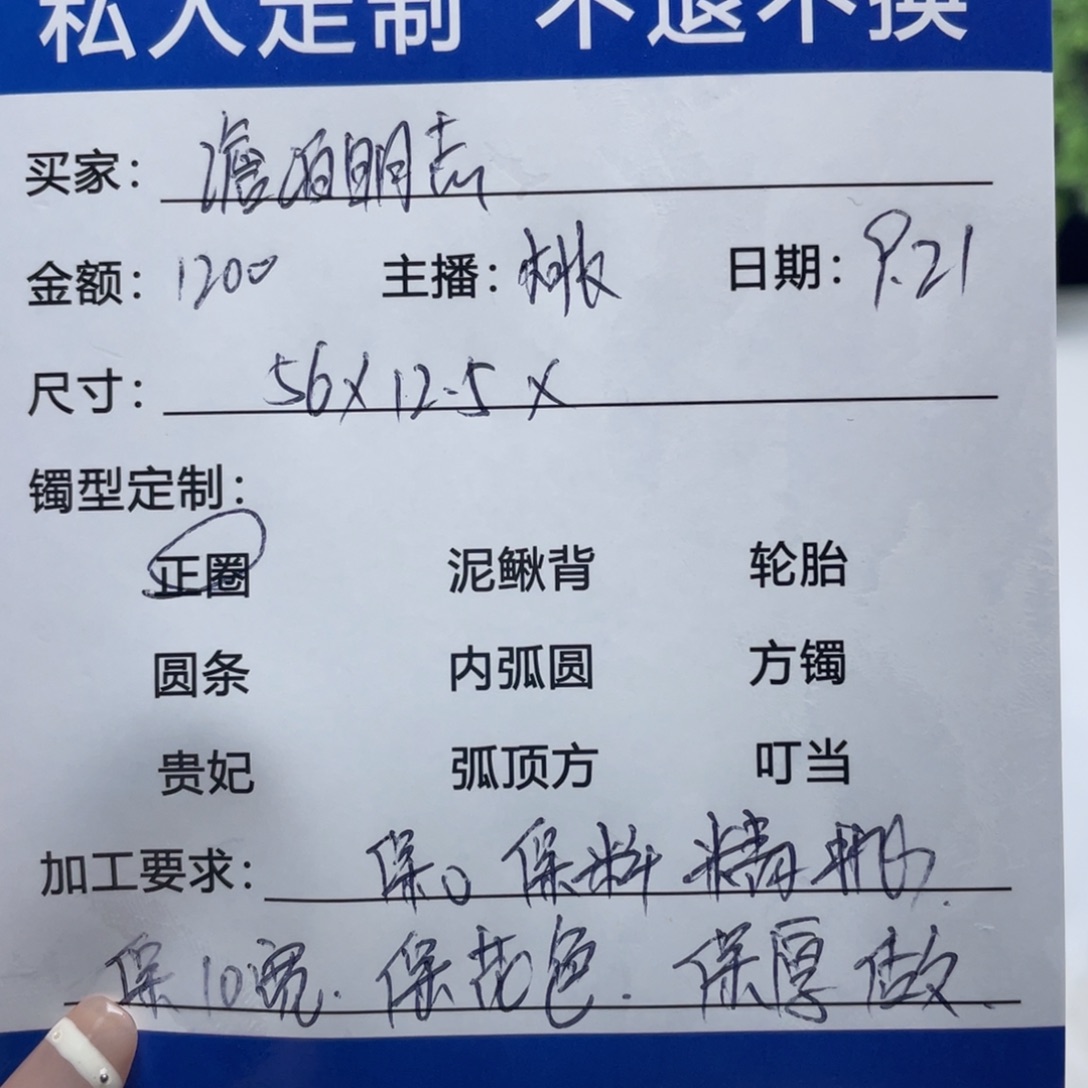 私人定制 不退不换
买家：澹泊明志
金额：1200 主播：桃 日期：9.21
尺寸：56X12.5X
镯型定制：
正圈 泥鳅背 轮胎
圆条 内弧圆 方镯
贵妃 弧顶方 叮当
加工要求：保。保料 精抛.
保10宽. 保花色. 保厚做.